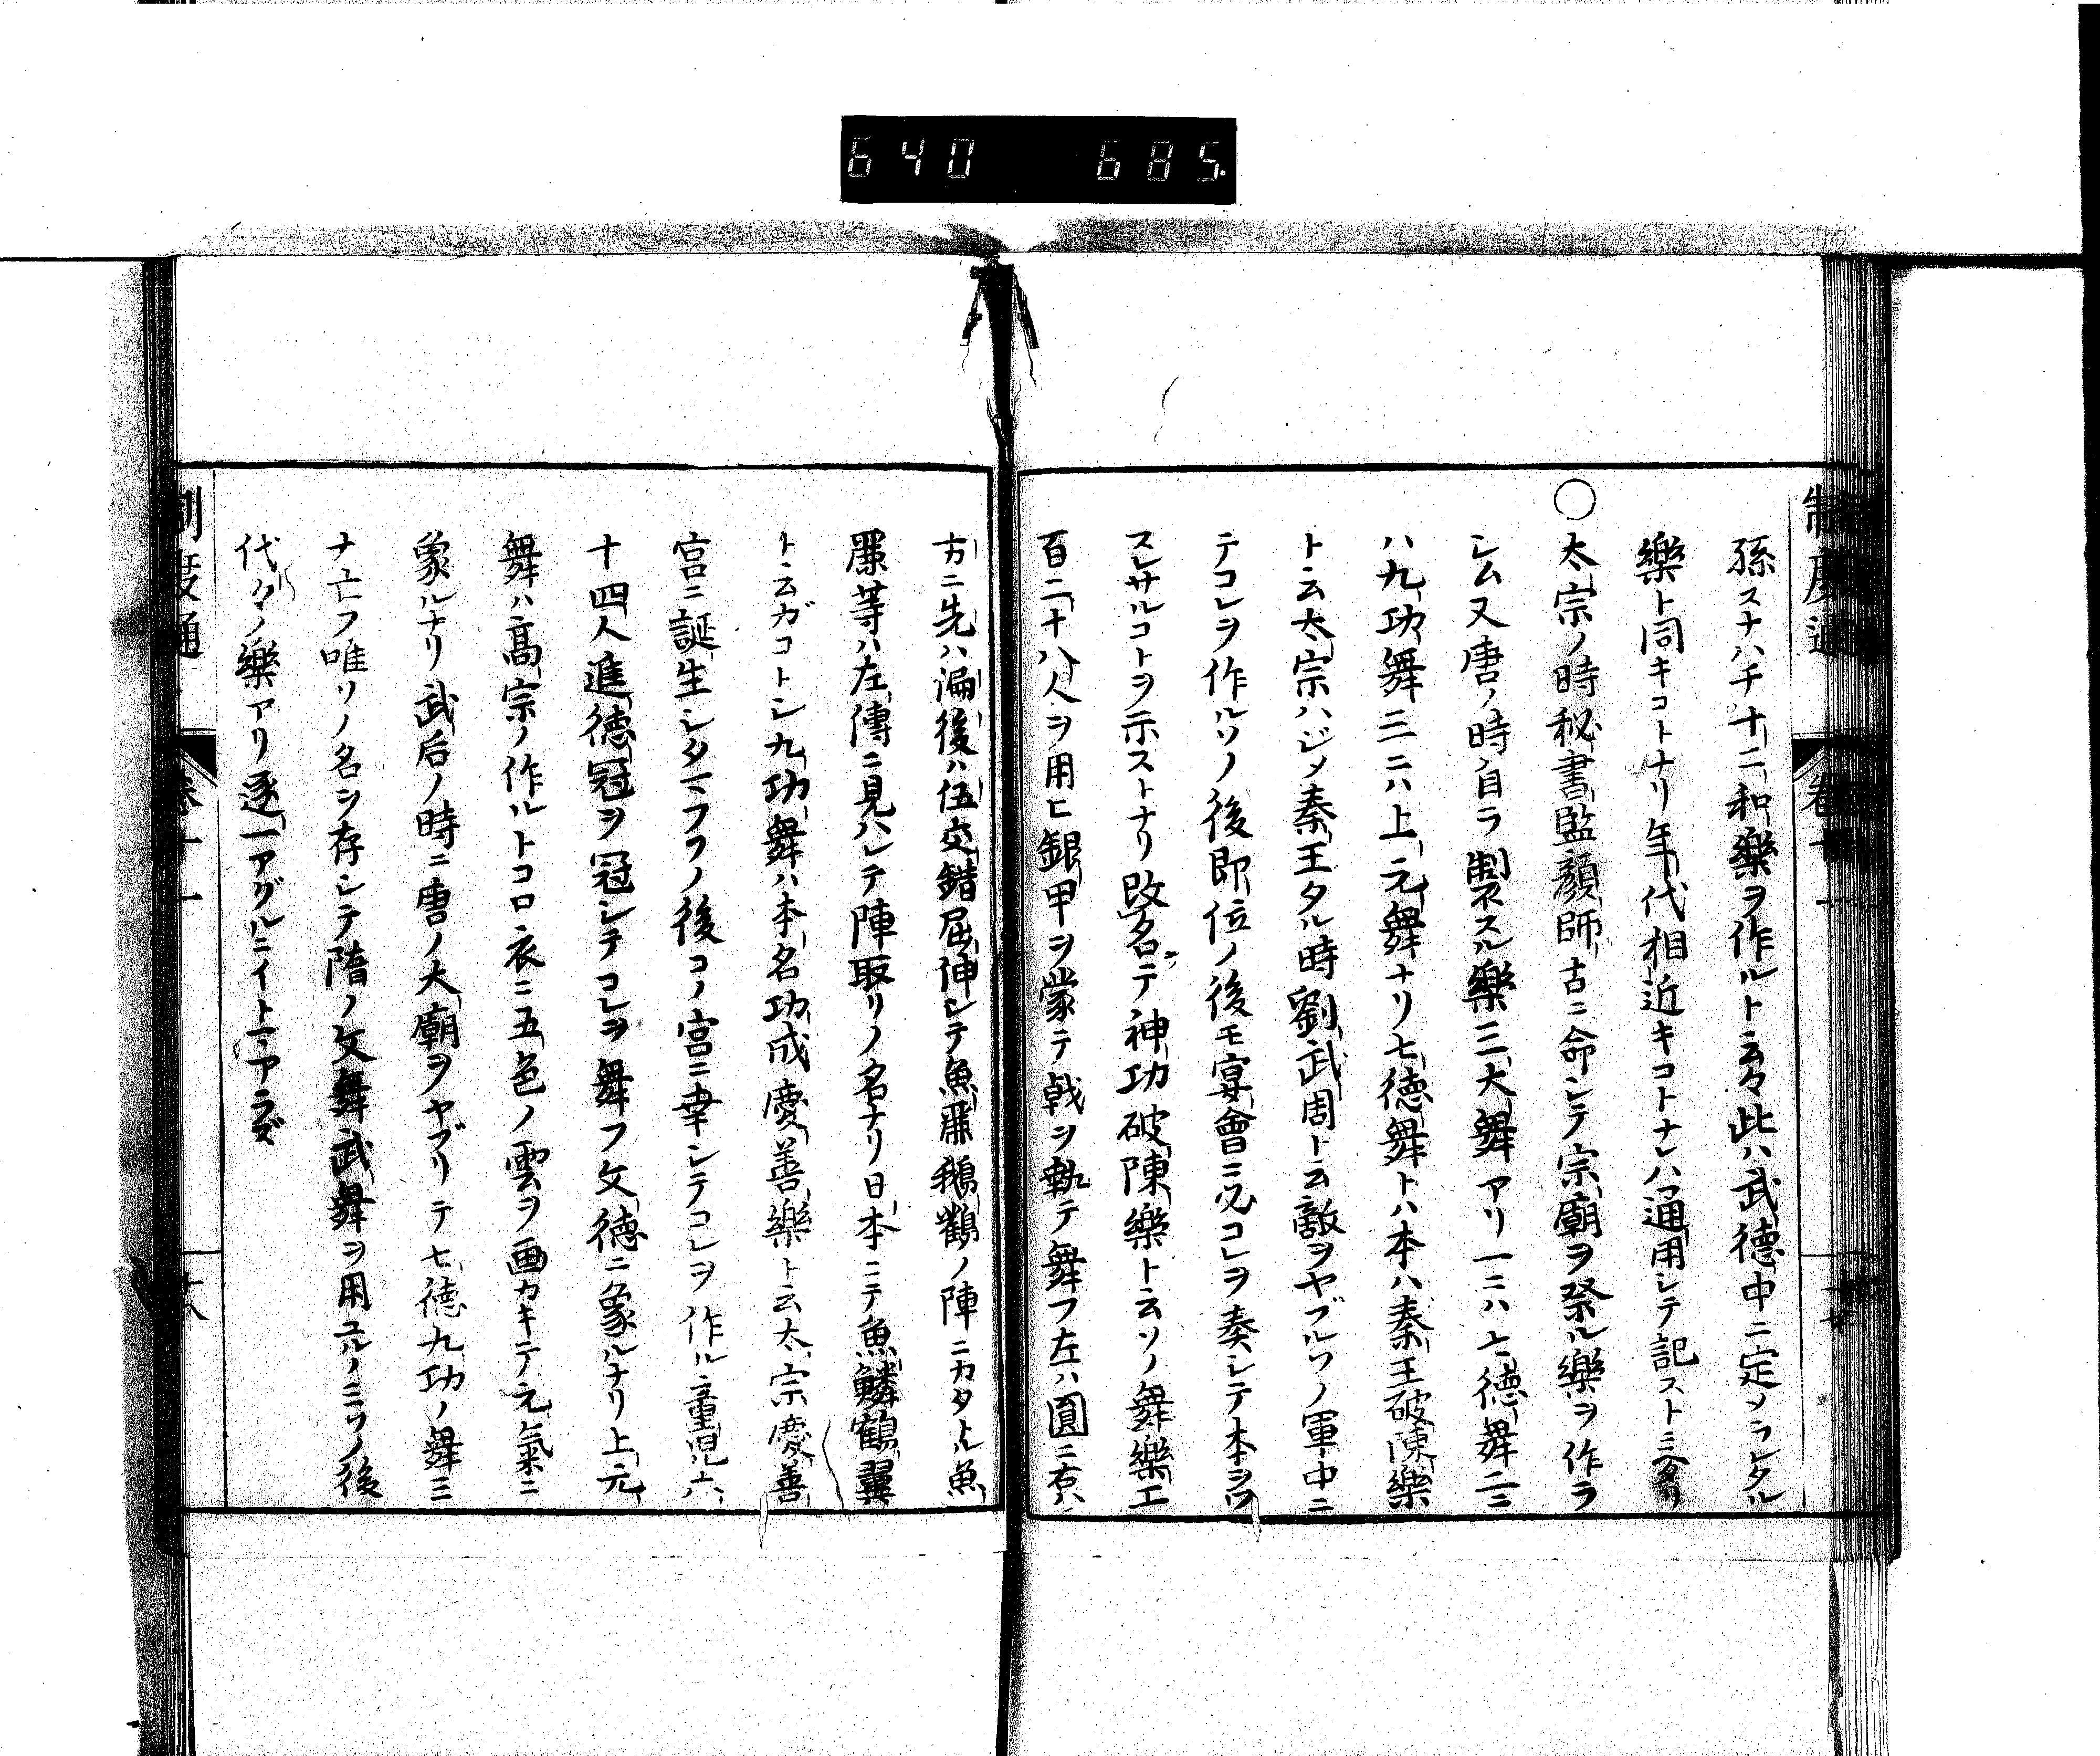 640 685.
制度通 卷十一
孫スナハチ十二和樂ヲ作ルト云々此ハ武德中ニ定メラレタル
樂ト同キコトナリ年代相近キコトナレハ通用シテ記スト云
○太宗ノ時秘書監顔師古ニ命シテ宗廟ヲ祭ル樂ヲ作ラ
シム又唐ノ時自ラ製スル樂三大舞アリ一ニハ七徳舞二ニ
ハ九功舞三ニハ上元舞ナリ七徳舞トハ本ハ秦王破陳樂
ト云太宗ハジメ秦王タル時劉武周ト云敵ヲヤブルソノ軍中ニ
テコレヲ作ルソノ後即位ノ後モ宴會ニ必コレヲ奏シテ本ヲワ
スレサルコトヲ示ストナリ改名テ神功破陳樂ト云ソノ舞樂工
百二十八人ヲ用ヒ銀甲ヲ蒙テ戟ヲ執テ舞フ左ハ圓ニ右ハ
方ニ先ハ漏後ハ伍交錯屈伸シテ魚麗鵝鸛ノ陣ニカタトル魚
麗等ハ左傳ニ見ハレテ陣取リノ名ナリ日本ニテ魚鱗鶴翼
ト云ガコトシ九功舞ハ本名功成慶善樂ト云太宗慶善
宮ニ誕生シタマフソノ後コノ宮ニ幸シテコレヲ作ル童児六
十四人進徳冠ヲ冠シテコレヲ舞フ文徳ニ象ルナリ上元
舞ハ高宗ノ作ルトコロ衣ニ五色ノ雲ヲ画カキテ元氣ニ
象ルナリ武后ノ時ニ唐ノ大廟ヲヤブリテ七徳九功ノ舞ミ
ナ亡フ唯ソノ名ヲ存シテ隋ノ文舞武舞ヲ用ユルノミソノ後
代々ノ樂アリ逐一アグルニイトマアラズ
制度通 卷十一 十八